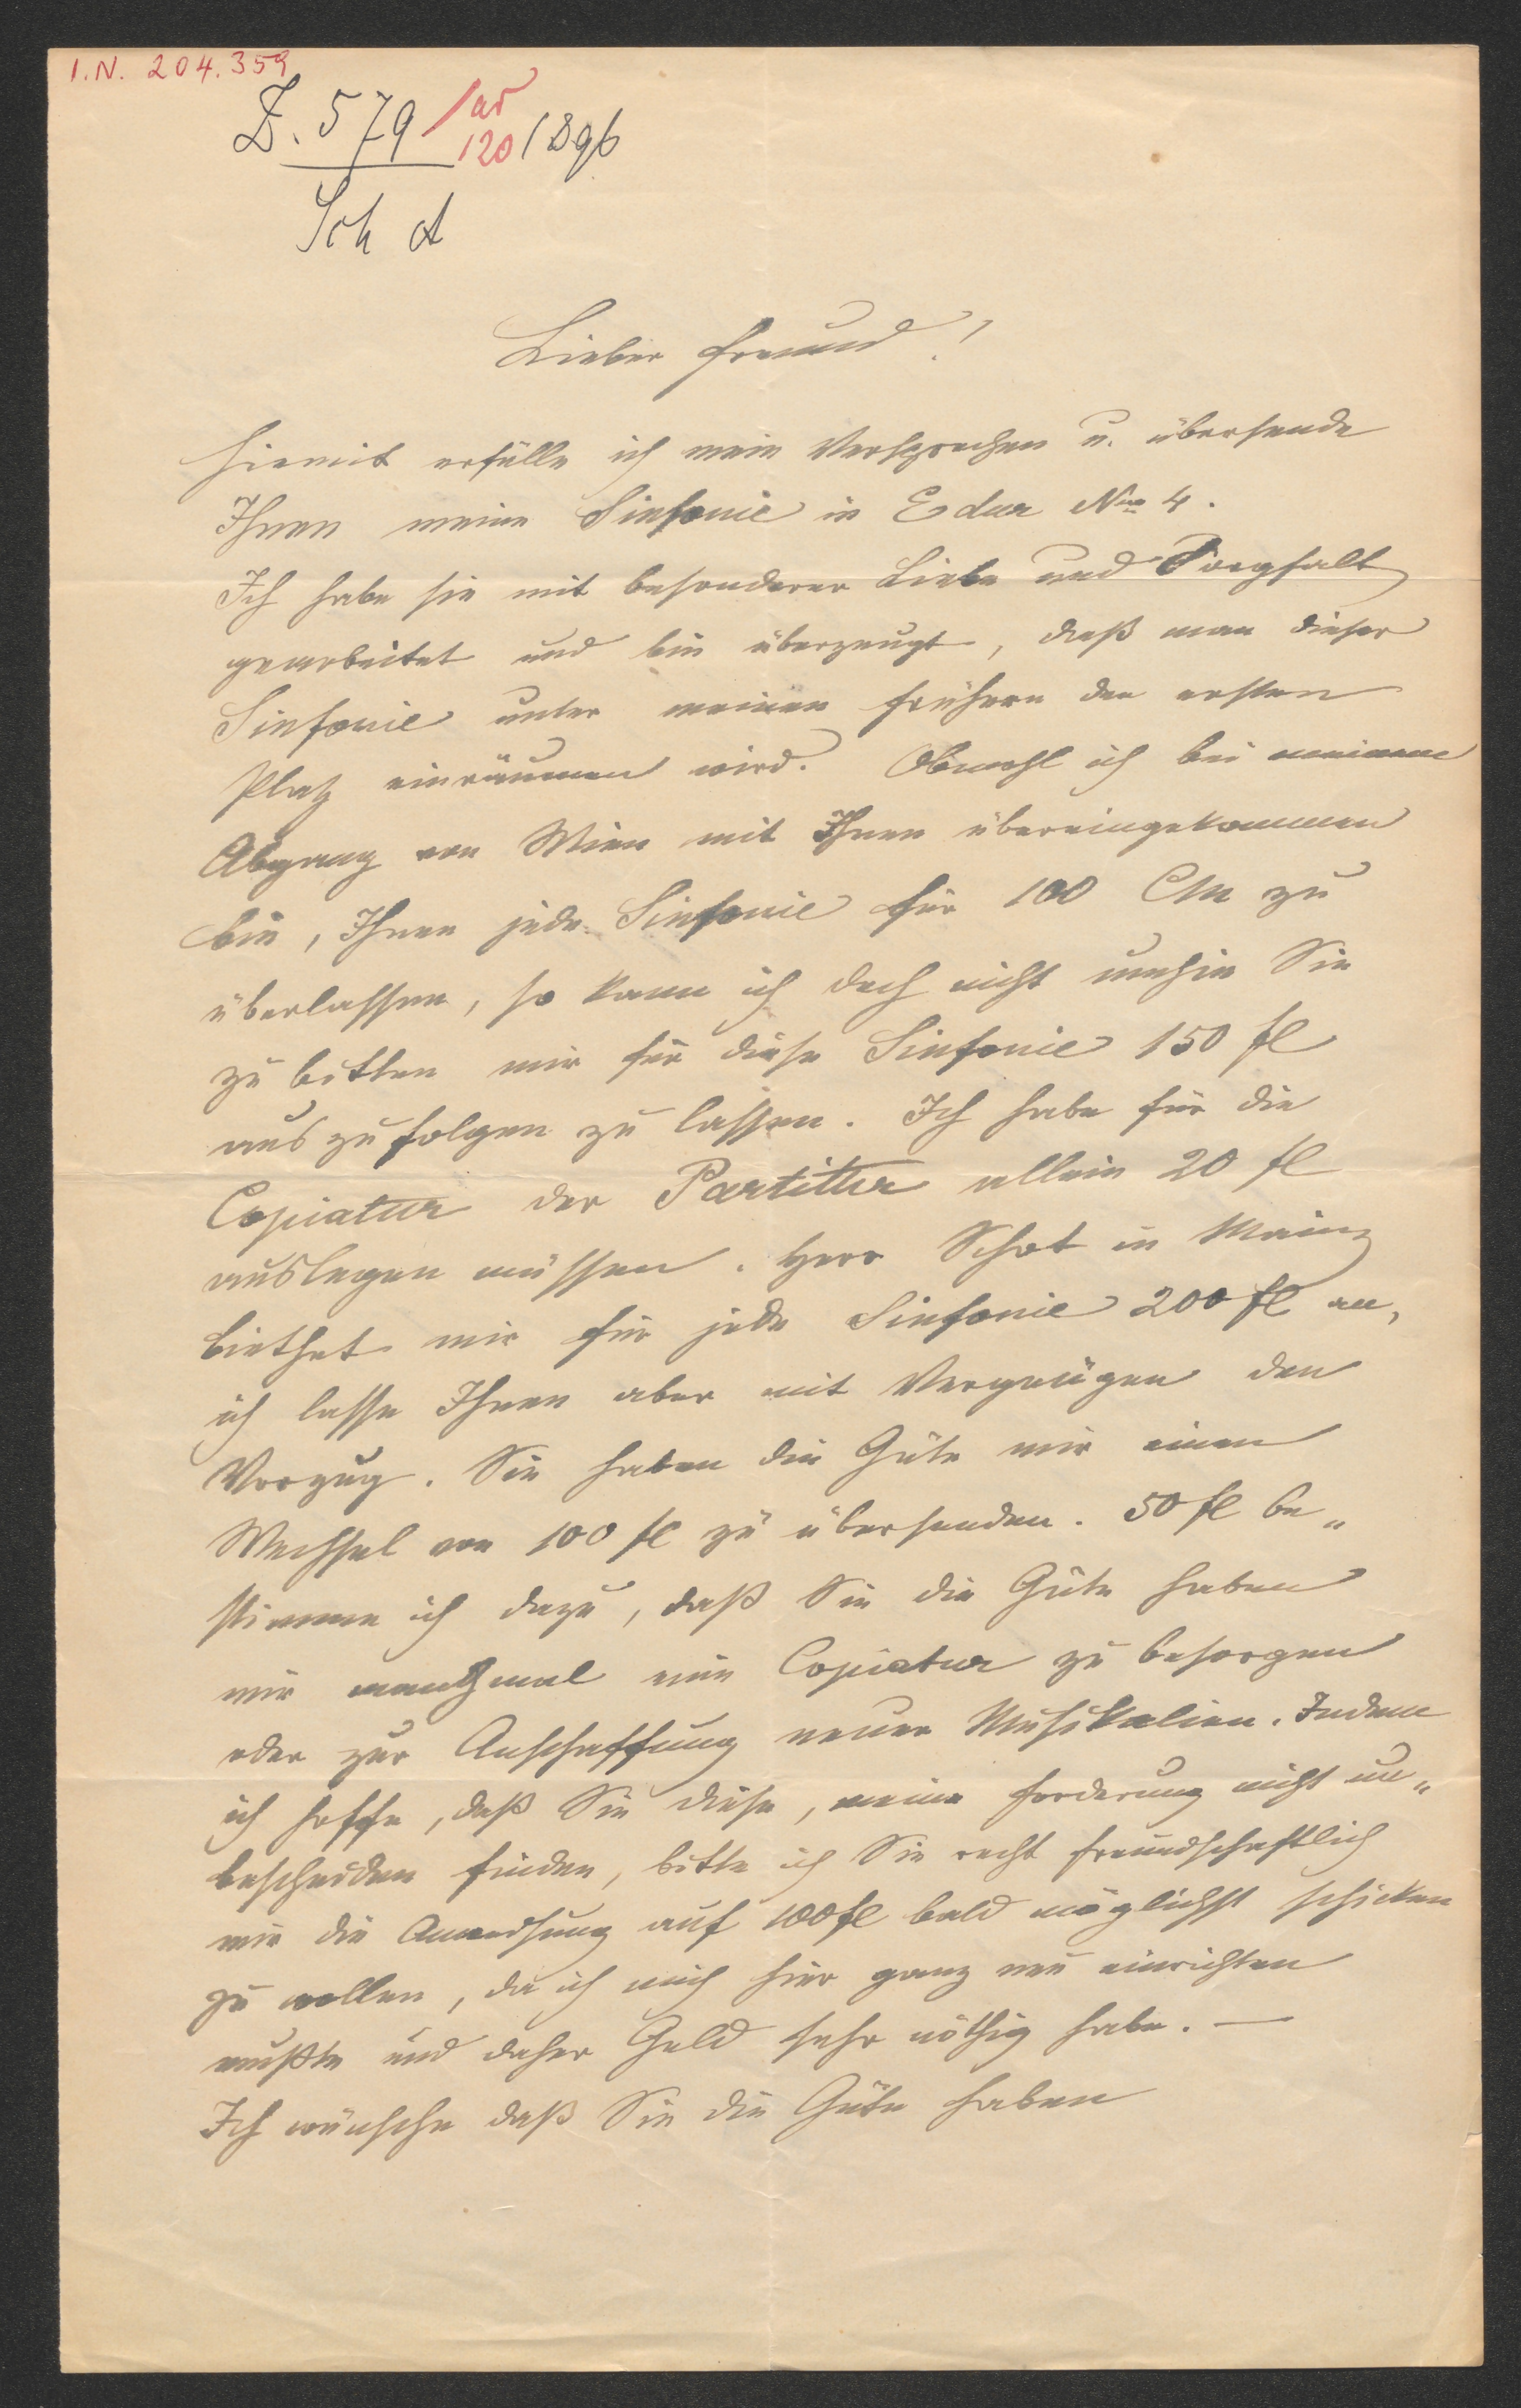 I.N. 204.359
Z. 579 /ar
120/896
Sch A
Lieber Freund!
Hiemit erfülle ich mein Versprechen u. übersende
Ihnen meine Sinfonie in Edur Nro 4.
Ich habe sie mit besonderer Liebe und Sorgfalt
gearbeitet und bin überzeugt, daß man dieser
Sinfonie unter meinen frühern den ersten
Platz einräumen wird. Obwohl ich bei meinem
Abgang von Wien mit Ihnen übereingekommen
bin, Ihnen jede Sinfonie für 100 CM zu
überlassen, so kann ich doch nicht umhin Sie
zu bitten mir für diese Sinfonie 150 fl
auszufolgen zu lassen. Ich habe für die
Copiatur der Partitur allein 20 fl
auslegen müssen. Herr Schot in Mainz
biethet mir für jede Sinfonie 200 fl an,
ich lasse Ihnen aber mit Vergnügen den
Vorzug. Sie haben die Güte mir einen
Wechsel von 100 fl zu übersenden. 50 fl be„
stimme ich dazu, daß Sie die Güte haben
mir manchmal eine Copiatur zu besorgen
oder zur Anschaffung neuer Musikalien. Indem
ich hoffe, daß Sie diese, meine Forderung nicht un„
bescheiden finden, bitte ich Sie recht freundschaftlich
mir die Anweisung auf 100 fl bald möglichst schicken
zu wollen, da ich mich hier ganz neu einrichten
mußte und daher Geld sehr nöthig habe. —
Ich wünsche daß Sie die Güte haben